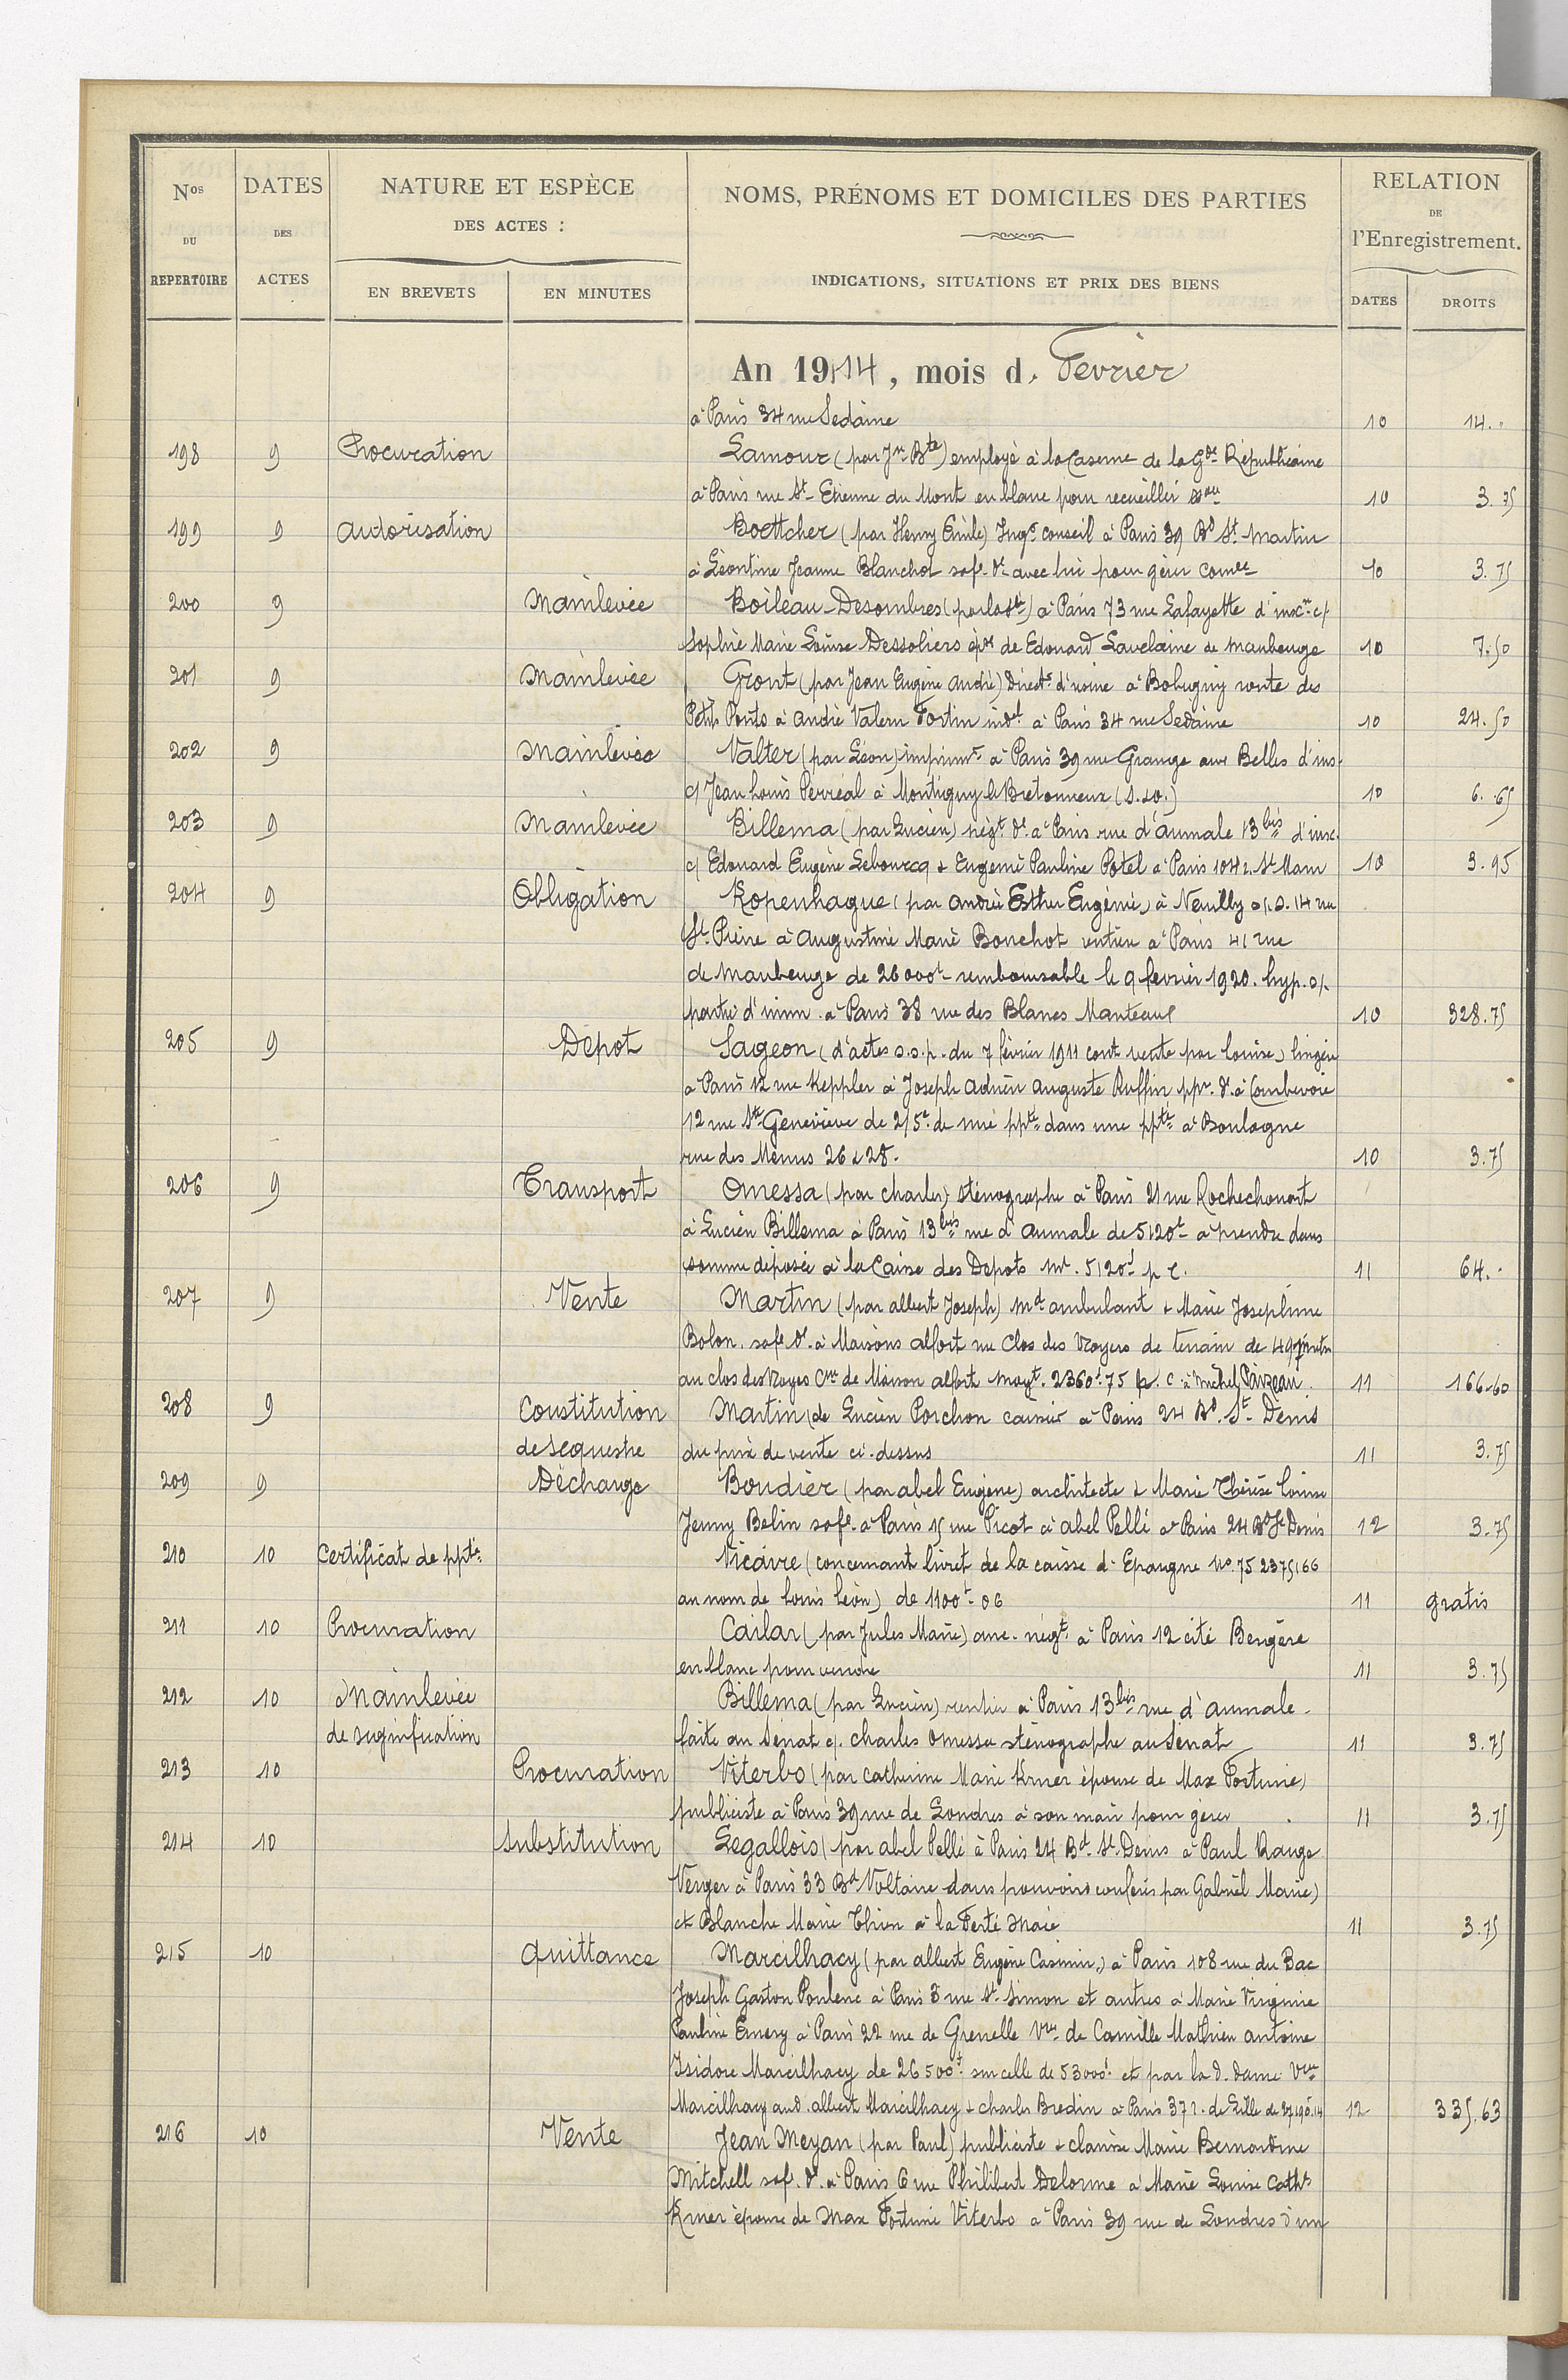 Nos DU REPERTOIRE
DATES DES ACTES
NATURE ET ESPÈCE DES ACTES :
EN BREVETS
EN MINUTES
NOMS, PRÉNOMS ET DOMICILES DES PARTIES
INDICATIONS, SITUATIONS ET PRIX DES BIENS
RELATION DE l'Enregistrement.
DATES
DROITS
An 1914, mois d. Fevrier
à Paris 34 rue Sedaine 10 14. "
198 9 Procuration Lamour (par Jn Bte) employé à la Caserne de la Gde Républicaine
à Paris rue St Etienne du Mont en blanc pour recueillir 10 3.75
199 9 Autorisation Boettcher (par Henry Emile) Ingr conseil à Paris 39 Bd St Martin
à Léontine Jeanne Blanchot sa fe dt avec lui pour gérer 10 3.75
200 9 Mainlevée Boileau-Desombres (par la Sté) à Paris 73 rue Lafayette d'inscn c/
Sophie Marie Louise Dessoliers épse de Edouard Lavelaine de Maubeuge 10 7.50
201 9 Mainlevée Gront (par Jean Eugène André) Directr d'usine à Bobigny route des
Petits Ponts à André Valery Fortin indel à Paris 34 rue Sedaine 10 24.50
202 9 Mainlevée Valter (par Léon) imprimr à Paris 39 rue Grange aux Belles d'ins.
c/ Jean Louis Perréal à Montigny le Bretonneux (S.&O.) 10 6.65
203 9 Mainlevée Billema (par Lucien) négt dt à Paris rue d'Aumale 13 bis d'insc.
c/ Edouard Eugène Lebourcq & Eugenie Pauline Potel à Paris 104 r. St Maur 10 3.95
204 9 Obligation Kopenhague (par Andrée Esther Eugénie) à Neuilly s/.S. 14 rue
St Pierre à Augustine Marie Bouchot rentière à Paris 41 rue
de Maubeuge de 26000f remboursable le 9 fevrier 1920. hyp. s/.
partie d'imm. à Paris 38 rue des Blancs Manteaux 10 328.75
205 9 Dépot Sageon (d'actes s.s.p. du 7 février 1911 cont vente par Louise) lingère
à Paris 12 rue Keppler à Joseph Adrien Auguste Ruffin ppr. dt à Courbevoie
12 rue Ste Geneviève de 2/5e de nue ppté dans une ppté à Boulogne
rue des Menus 26 & 28. 10 3.75
206 9 Transport Omessa (par Charles) sténographe à Paris 21 rue Rochechouart
à Lucien Billema à Paris 13 bis rue d'Aumale de 5120f à prendre dans
somme déposée à la Caisse des Depots mt. 5120f p C. 11 64. "
207 9 Vente Martin (par Albert Joseph) md ambulant & Marie Josephine
Bolon. sa fe dt à Maisons Alfort rue Clos des Noyers de terrain de
au clos des Noyers Cne de Maison Alfort moyt. 2360f.75 p. C. à Michel 11 166.60
208 9 Constitution Martin (de Lucien Porchon caissier à Paris 24 Bd. St Denis
de sequestre du prix de vente ci-dessus 11 3.75
209 9 Décharge Boudier (par Abel Eugène) architecte & Marie Thérèse Louise
Jenny Belin sa fe à Paris 15 rue Picot à Abel Pellé à Paris 24 Bd St Denis 12 3.75
210 10 Certificat de ppté Vicaire (concernant livret de la caisse d'Epargne No. 75 2375166
au nom de Louis Léon) de 1100f.06 11 gratis
211 10 Procuration Cailar (par Jules Marie) anc. négt à Paris 12 cité Bergère
en blanc pour vendre 11 3.75
212 10 Mainlevée Billema (par Lucien) rentier à Paris 13 bis rue d'Aumale
de signification faite au Sénat c/. Charles Omessa sténographe au Sénat 11 3.75
213 10 Procuration Viterbo (par Catherine Marie Krner épouse de Max Fortuné)
publiciste à Paris 39 rue de Londres à son mari pour gérer 11 3.75
214 10 Substitution Legallois (par Abel Pellé à Paris 24 Bd. St. Denis à Paul Range
Verger à Paris 33 Bd Voltaire dans pouvoirs conférés par Gabriel Marie)
et Blanche Marie Thion à la Ferté Macé 11 3.75
215 10 Quittance Marcilhacy (par Albert Eugène Casimir,) à Paris 108 rue du Bac
Joseph Gaston Poulenc à Paris 3 rue St. Simon et autres à Marie Virginie
Pauline Emery à Paris 22 rue de Grenelle Vve de Camille Mathieu Antoine
Isidore Marcilhacy de 26500f sur celle de 53000f et par la d. dame Vve
Marcilhacy aud. Albert Marcilhacy & Charles Bredin à Paris 37 r. de Lille de 27190.14 12 335.63
216 10 Vente Jean Meyan (par Paul) publiciste & Clarisse Marie Bernardine
Mitchell sa fe. dt à Paris 6 rue Philibert Delorme à Marie Louise Cathe
Krner épouse de Max Fortuné Viterbo à Paris 39 rue de Londres d'un